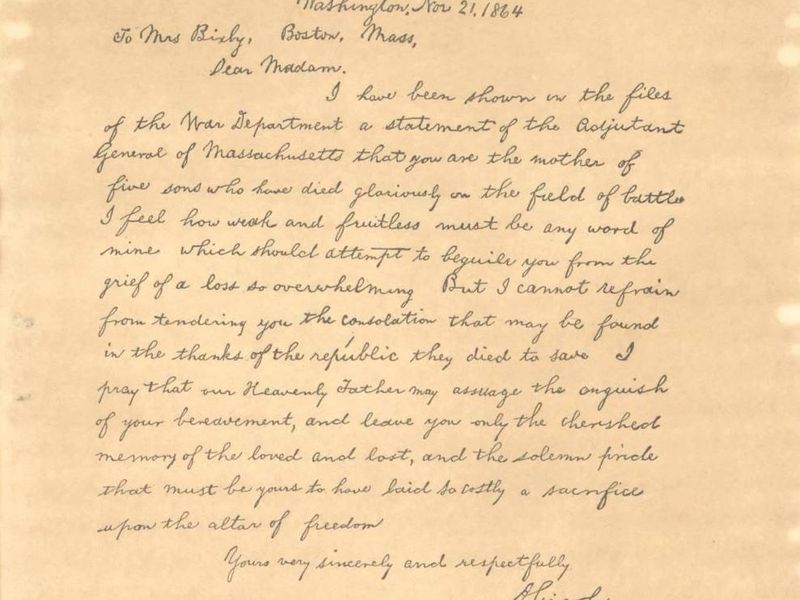 Washington, Nov 21, 1864
To Mrs Bixby, Boston, Mass,
Dear Madam.
I have been shown in the files
of the War Department a statement of the Adjutant
General of Massachusetts that you are the mother of
five sons who have died gloriously on the field of battle
I feel how weak and fruitless must be any word of
mine which should attempt to beguile you from the
grief of a loss so overwhelming But I cannot refrain
from tendering you the consolation that may be found
in the thanks of the republic they died to save I
pray that our Heavenly Father may assuage the anguish
of your bereavement, and leave you only the cherished
memory of the loved and lost, and the solemn pride
that must be yours to have laid so costly a sacrifice
upon the altar of freedom
Yours very sincerely and respectfully